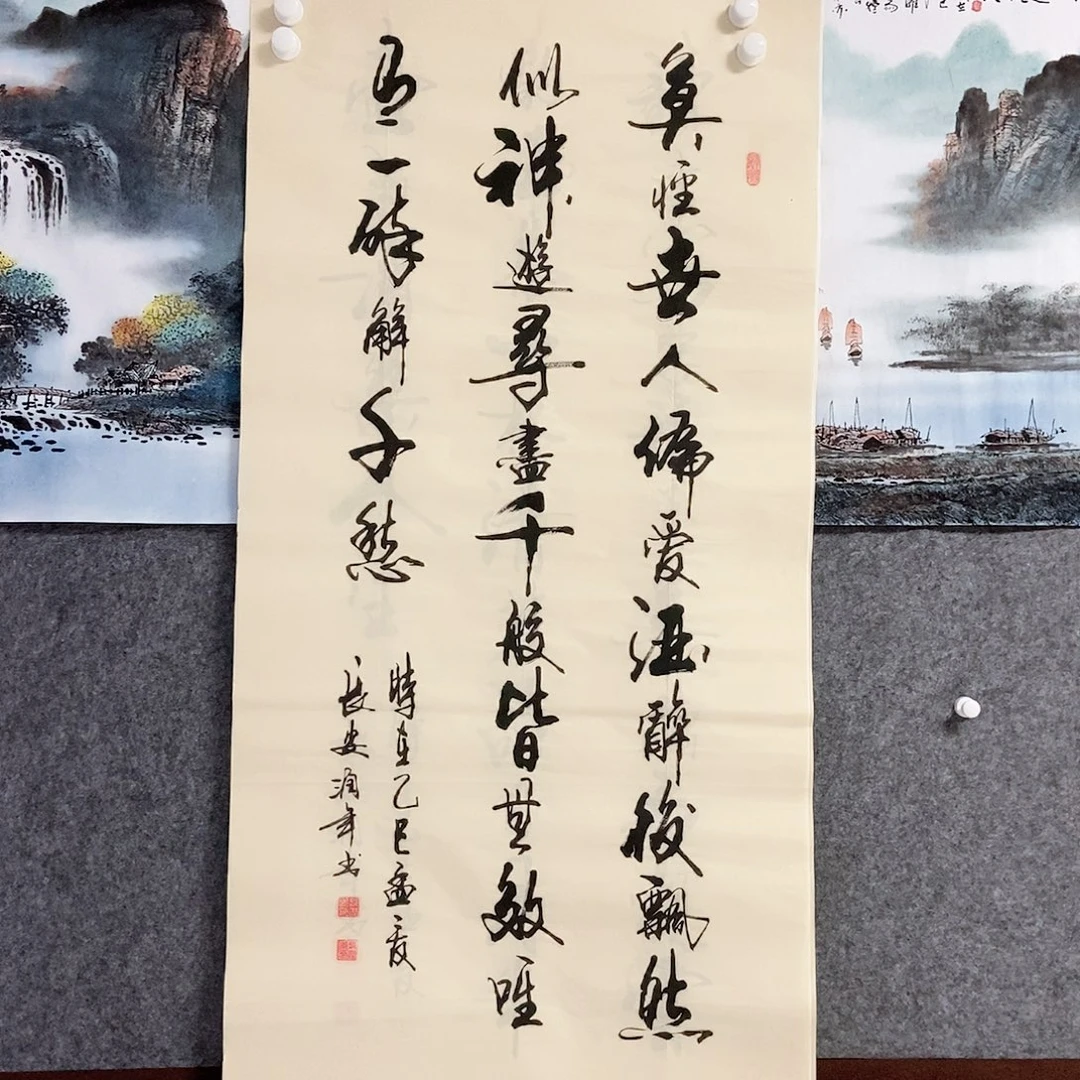 莫怪世人偏爱酒醉後飄然
似神遊尋盡千般皆無效唯
有一醉解千愁
時在乙巳孟夏
長安润年书